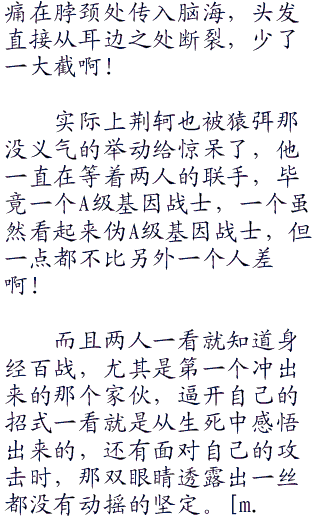 痛在脖颈处传入脑海，头发
直接从耳边之处断裂，少了
一大截啊！
实际上荆轲也被猿弭那
没义气的举动给惊呆了，他
一直在等着两人的联手，毕
竟一个A级基因战士，一个虽
然看起来伪A级基因战士，但
一点都不比另外一个人差
啊！
而且两人一看就知道身
经百战，尤其是第一个冲出
来的那个家伙，逼开自己的
招式一看就是从生死中感悟
出来的，还有面对自己的攻
击时，那双眼睛透露出一丝
都没有动摇的坚定。[m.